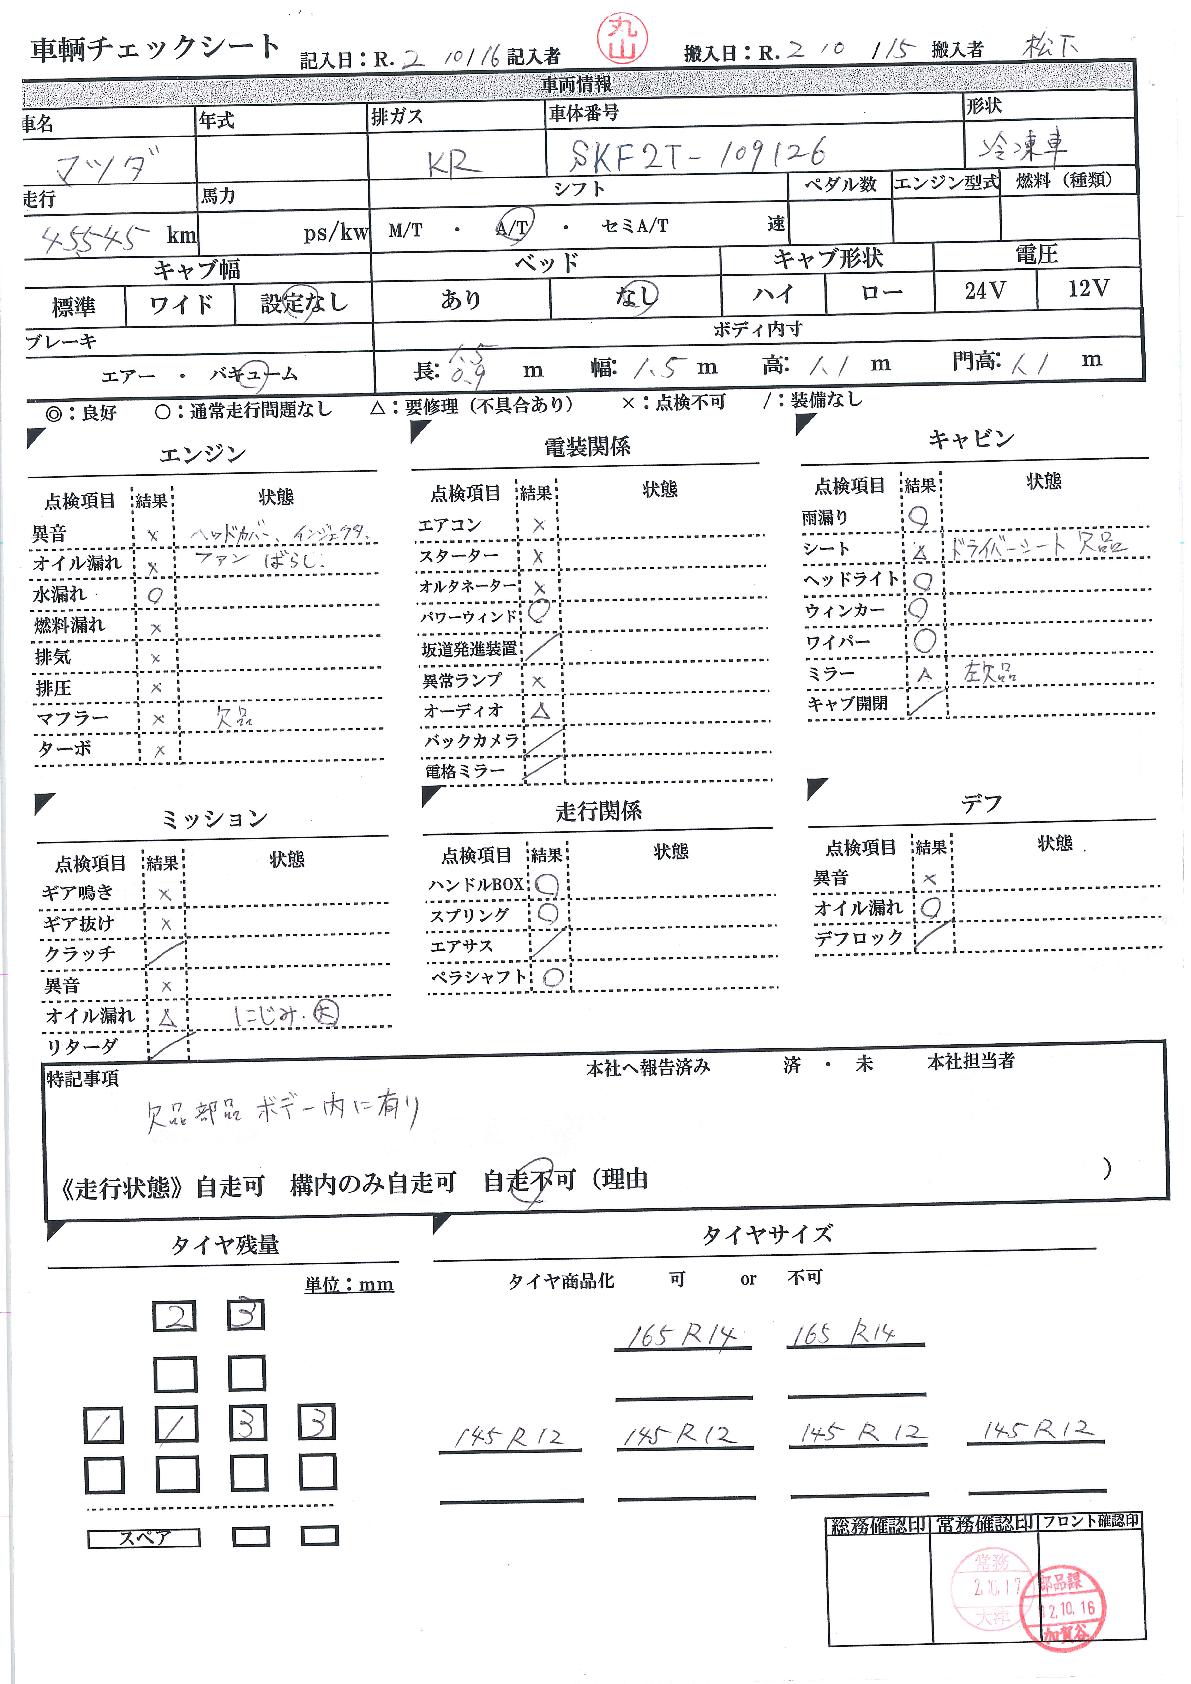 車輌チェックシート 記入日：R. 2 10/16 記入者 丸山 搬入日：R. 2 10 15 搬入者 松下
車両情報
車名 年式 排ガス 車体番号 形状
マツダ KR SKF2T-109126 冷凍車
走行 馬力 シフト ペダル数 エンジン型式 燃料（種類）
45545 km ps/kw M/T ・ A/T ・ セミA/T 速
キャブ幅 ベッド キャブ形状 電圧
標準 ワイド 設定なし あり なし ハイ ロー 24V 12V
ブレーキ ボディ内寸
エアー ・ バキューム 長: 1.5 0.9 m 幅: 1.5 m 高: 1.1 m 門高: 1.1 m
◎：良好 ○：通常走行問題なし △：要修理（不具合あり） ×：点検不可 /：装備なし
エンジン
点検項目 結果 状態
異音 × ヘッドカバー、インジェクタ、
オイル漏れ × ファン ばらし.
水漏れ ○
燃料漏れ ×
排気 ×
排圧 ×
マフラー × 欠品
ターボ ×
電装関係
点検項目 結果 状態
エアコン ×
スターター ×
オルタネーター ×
パワーウィンド ○
坂道発進装置 /
異常ランプ ×
オーディオ △
バックカメラ /
電格ミラー /
キャビン
点検項目 結果 状態
雨漏り ○
シート △ ドライバーシート 欠品
ヘッドライト ○
ウィンカー ○
ワイパー ○
ミラー △ 左欠品
キャブ開閉 /
ミッション
点検項目 結果 状態
ギア鳴き ×
ギア抜け ×
クラッチ /
異音 ×
オイル漏れ △ にじみ. 大
リターダ /
走行関係
点検項目 結果 状態
ハンドルBOX ○
スプリング ○
エアサス /
ペラシャフト ○
デフ
点検項目 結果 状態
異音 ×
オイル漏れ ○
デフロック /
特記事項 本社へ報告済み 済 ・ 未 本社担当者
欠品部品 ボデー内に有り
《走行状態》自走可 構内のみ自走可 自走不可（理由 ）
タイヤ残量
単位：mm
2 3
1 1 3 3
スペア
タイヤサイズ
タイヤ商品化 可 or 不可
165 R14 165 R14
145 R12 145 R12 145 R12 145 R12
総務確認印 常務確認印 フロント確認印
常務 2.10.17 大津
部品課 2.10.16 加賀谷